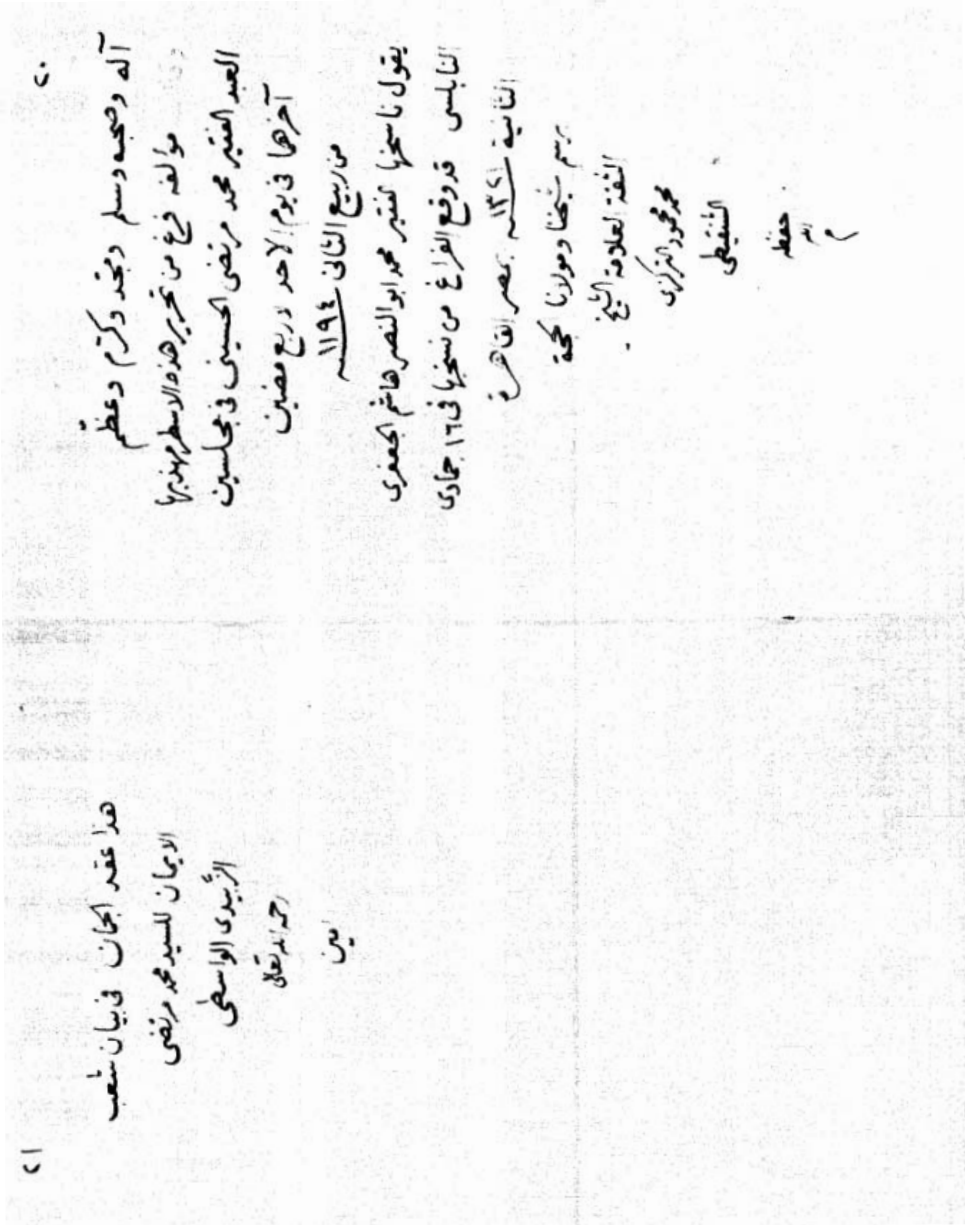 ٢٠
آله وصحبه وسلم ومجد وكرم وعظم
مؤلفه فرغ من تحرير هذه الاسطر مهذبها
العبد الفقير محمد مرتضى الحسينى فى مجلسين
آخرهما فى يوم الاحد لاربع مضين
من ربيع الثانى سنة ١١٩٤
يقول ناسخها الفقير محمد ابو النصر هاشم الجعفرى
النابلسى قد وقع الفراغ من نسخها فى ١٦ جمادى
الثانية سنة ١٣٢١ بمصر القاهرة
برسم شيخنا ومولانا الحجة
الثقة العلامة الشيخ
محمد محمود التركزى
الشنقيطى
حفظه
الله
م
٢١
هذا عقد الجمان فى بيان شعب
الايمان للسيد محمد مرتضى
الزبيدى الواسطى
رحمه الله تعالى
امين